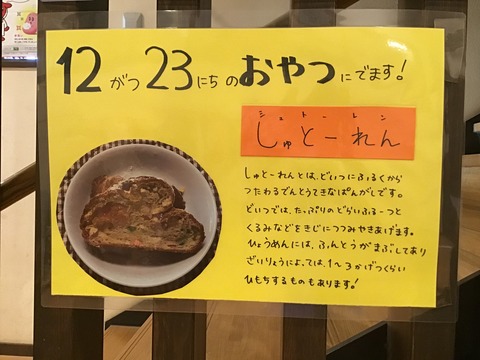 12がつ23にちのおやつにでます!
シュトーレン
しゅとーれん
しゅとーれんとは、どいつにふるくから
つたわるでんとうてきなぱんがしです。
どいつでは、たっぷりのどらいふるーつと
くるみなどをきじにつつみやきあげます。
ひょうめんには、ふんとうがまぶしてあり
ざいりょうによっては、1~3かげつくらい
ひもちするものもあります!